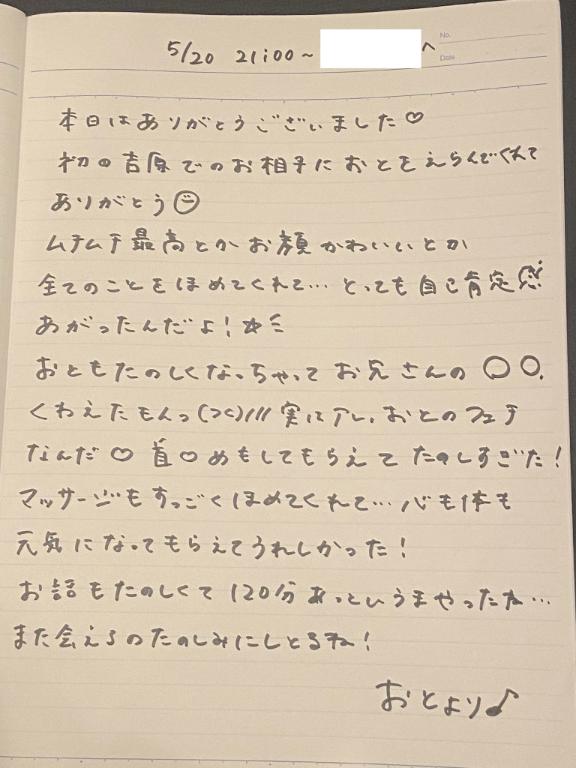 No.
Date
5/20 21:00~ へ
本日はありがとうございました♡
初の吉原でのお相手におとをえらんでくれて
ありがとう☺
ムチムチ最高とかお顔かわいいとか
全てのことをほめてくれて…とっても自己肯定感
あがったんだよ!☆ミ
おともたのしくなっちゃってお兄さんの〇〇、
くわえたもんっ(つc)/// 実はアレ、おとのフェチ
なんだ♡ 首〇めもしてもらえてたのしすごた!
マッサージもすっごくほめてくれて…心も体も
元気になってもらえてうれしかった!
お話もたのしくて120分あっというまやったね…
また会えるのたのしみにしとるね!
おとより♪